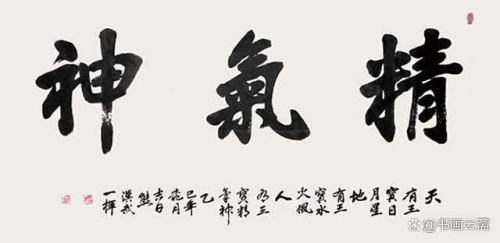 精氣神
天
有三
寶日
月星
地
有三
寶水
火風
人
有三
寶精
氣神
乙
巳年
月
吉日
熊
漢武
一揮
@书画云斋